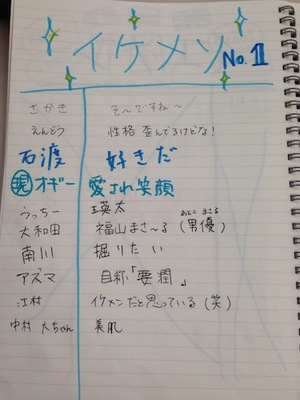 イケメン No.1
さかき そ〜ですね〜
えんどう 性格歪んでるけどな!
石渡 好きだ
現オギー 愛され笑顔
うっちー 瑛太
大和田 福山まさ〜る(男優)
おとこ まさる
南川 掘りたい
アズマ 自称「要潤」
江村 イケメンだと思っている(笑)
中村 大ちゃん 美肌